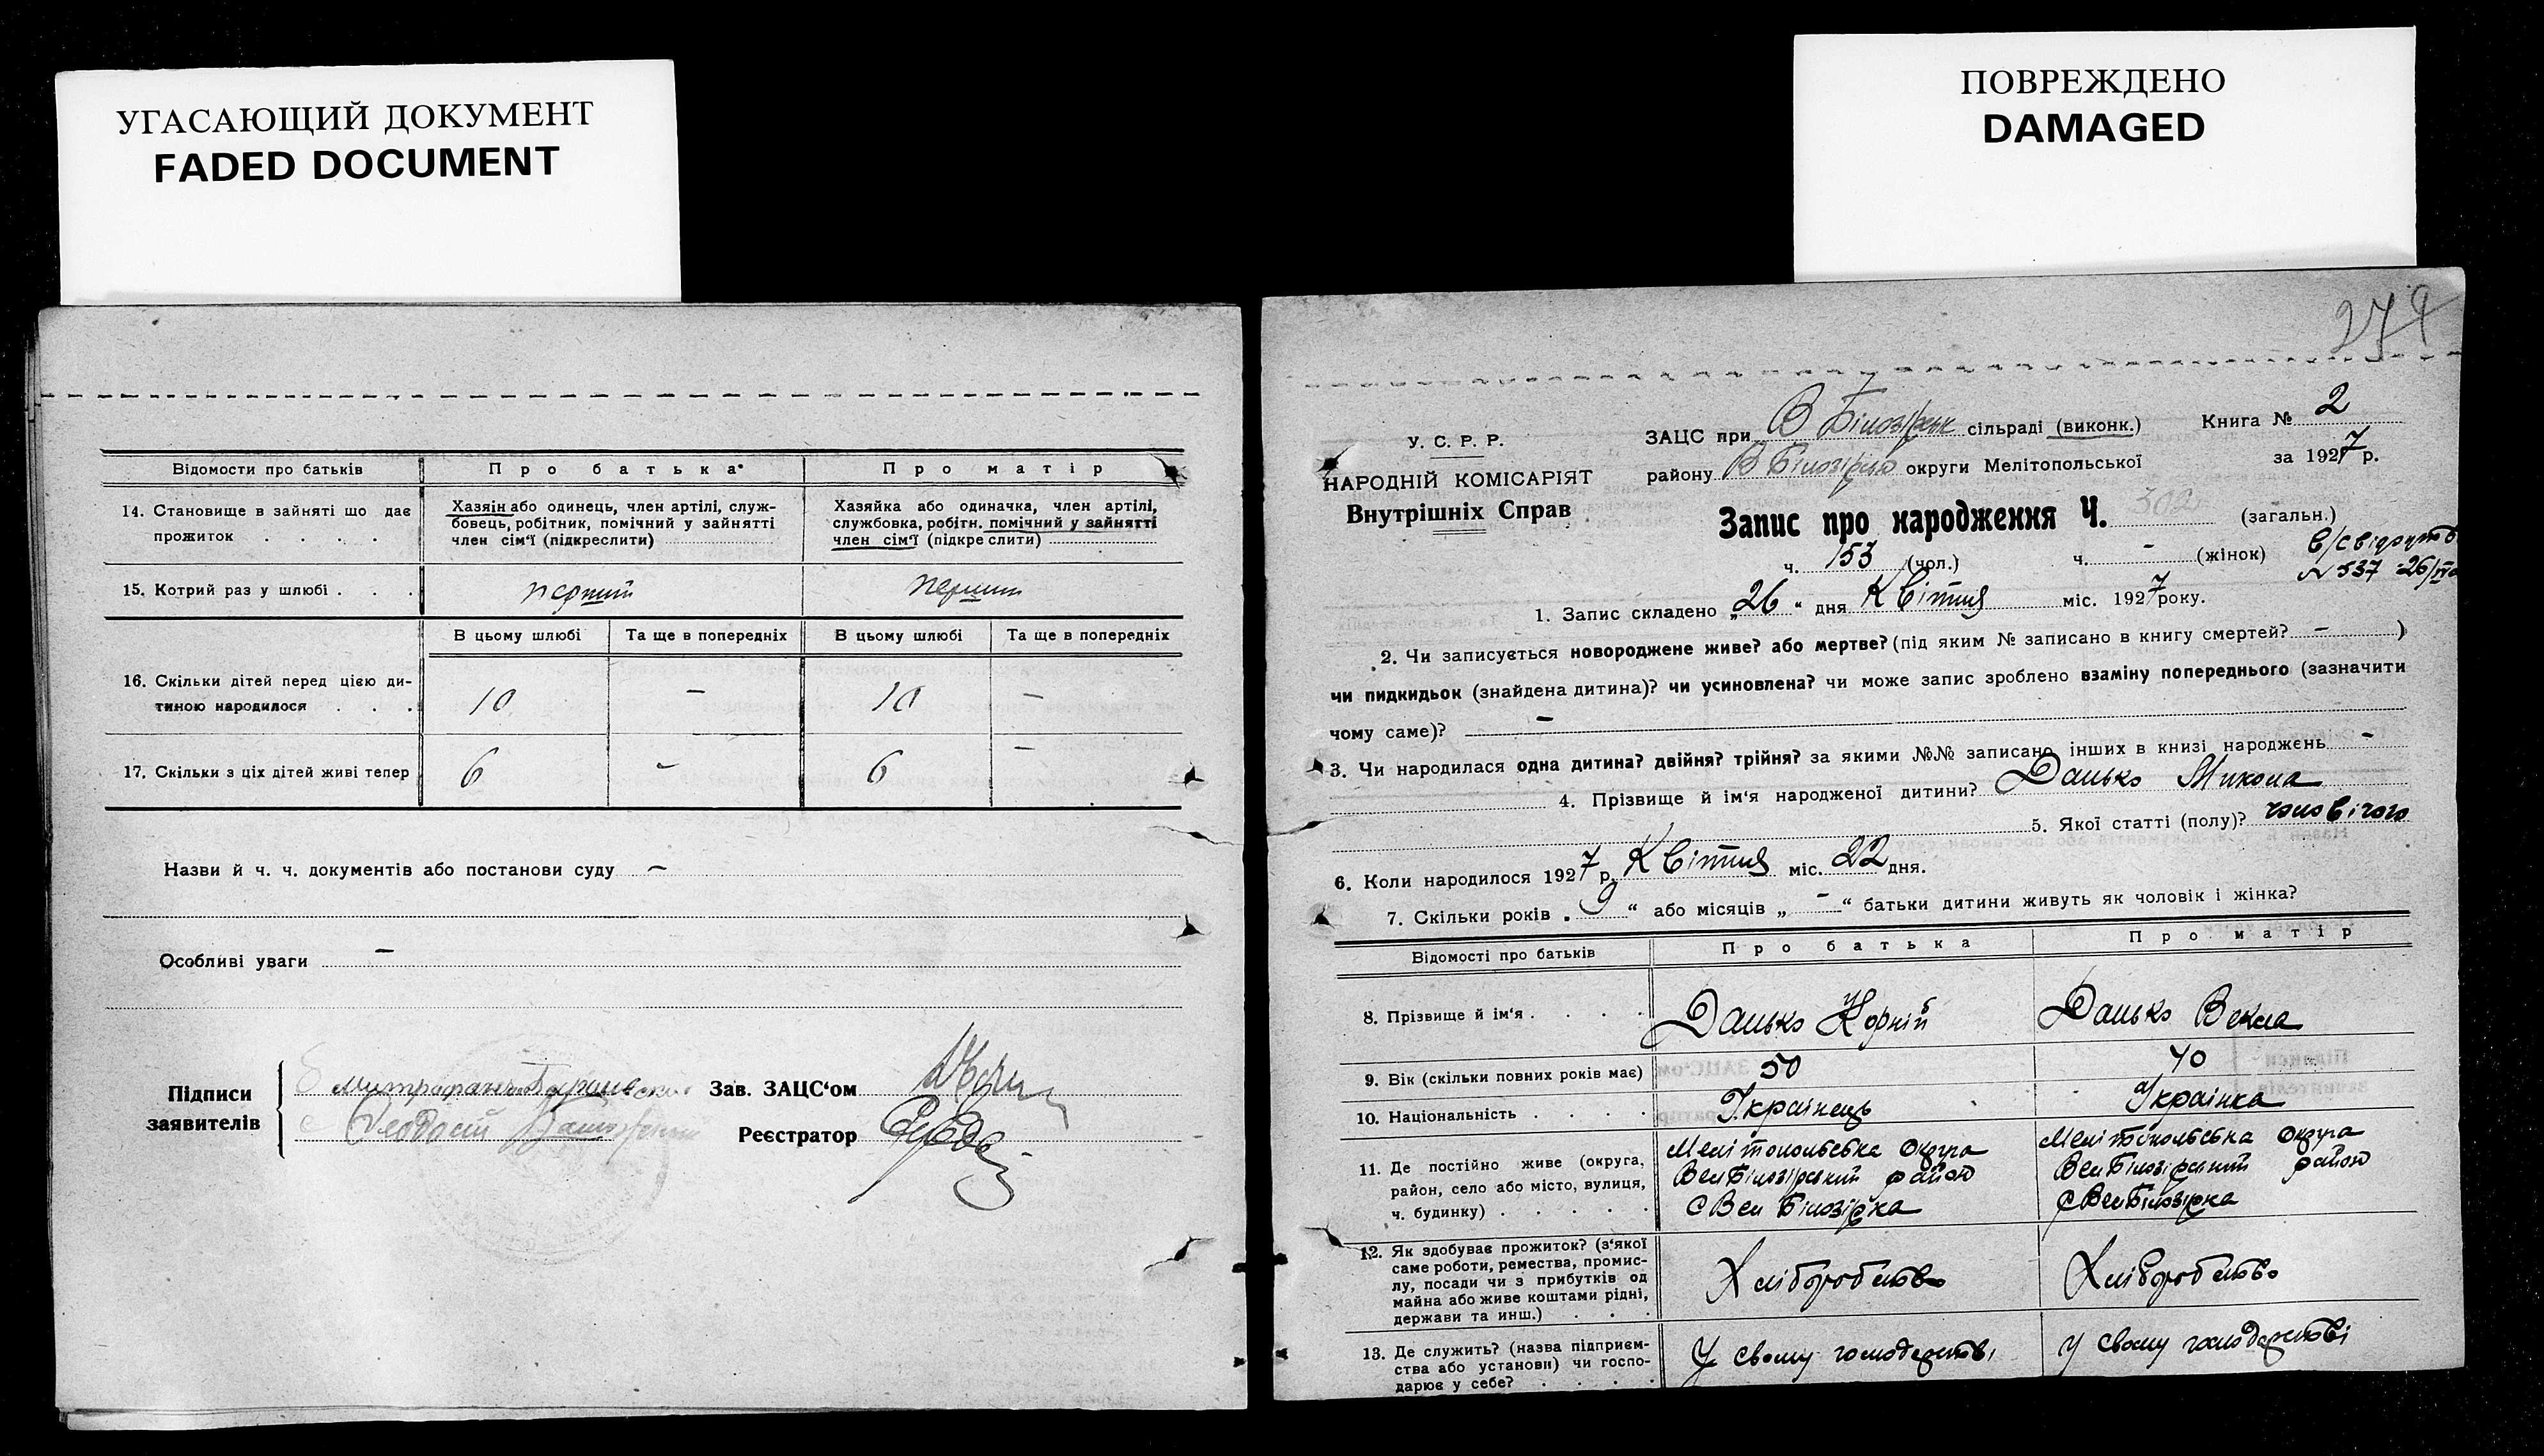 УГАСАЮЩИЙ ДОКУМЕНТ
FADED DOCUMENT
ПОВРЕЖДЕНО
DAMAGED
Відомости про батьків Про батька Про матір
14. Становище в зайняті що дає прожиток . . . .
Хазяін або одинець, член артілі, служ-
бовець, робітник, помічний у зайнятті
член сім'ї (підкреслити)
Хазяйка або одиначка, член артілі,
службовка, робітн. помічний у зайнятті
член сім'ї (підкреслити)
15. Котрий раз у шлюбі . . . перший перший
В цьому шлюбі Та ще в попередніх В цьому шлюбі Та ще в попередніх
16. Скільки дітей перед цією ди-
тиною народилося . . . 10 – 10 –
17. Скільки з ціх дітей живі тепер 6 – 6 –
Назви й ч. ч. документів або постанови суду –
Особливі уваги –
Підписи
заявителів
Зав. ЗАЦС'ом
Реєстратор
274
У. С. Р. Р.
НАРОДНІЙ КОМІСАРІЯТ
Внутрішніх Справ
ЗАЦС при В Білозірськ сільраді (виконк.) Книга № 2
району В Білозірсько округи Мелітопольської за 1927 р.
Запис про народження Ч. 302 (загальн.)
ч. 153 (чол.) ч. – (жінок)
№ 537 26/IV
1. Запис складено „26“ дня Квітня міс. 1927 року.
2. Чи записується новороджене живе? або мертве? (під яким № записано в книгу смертей? – )
чи пидкидьок (знайдена дитина)? чи усиновлена? чи може запис зроблено взаміну попереднього (зазначити
чому саме)? –
3. Чи народилася одна дитина? двійня? трійня? за якими №№ записано інших в книзі народжень –
4. Прізвище й ім'я народженої дитини? Данько Микола
5. Якої статті (полу)? чоловічого
6. Коли народилося 1927 р. Квітня міс. 22 дня.
7. Скільки років „9“ або місяців „–“ батьки дитини живуть як чоловік і жінка?
Відомості про батьків Про батька Про матір
8. Прізвище й ім'я . . . . Данько Корній Данько Векла
9. Вік (скільки повних років має) 50 40
10. Національність . . . . Українець Українка
11. Де постійно живе (округа,
район, село або місто, вулиця,
ч. будинку) . . . . .
Мелітопольська округа
Вел Білозірський район
С Вел Білозірка
Мелітопольська округа
Вел Білозірський район
С Вел Білозірка
12. Як здобуває прожиток? (з'якої
саме роботи, ремества, промис-
лу, посади чи з прибутків од
майна або живе коштами рідні,
держави та инш.) . . .
Хліборобство
Хліборобство
13. Де служить? (назва підприєм-
ства або установи) чи госпо-
дарює у себе? . . . .
У свому господарстві
У свому господарстві